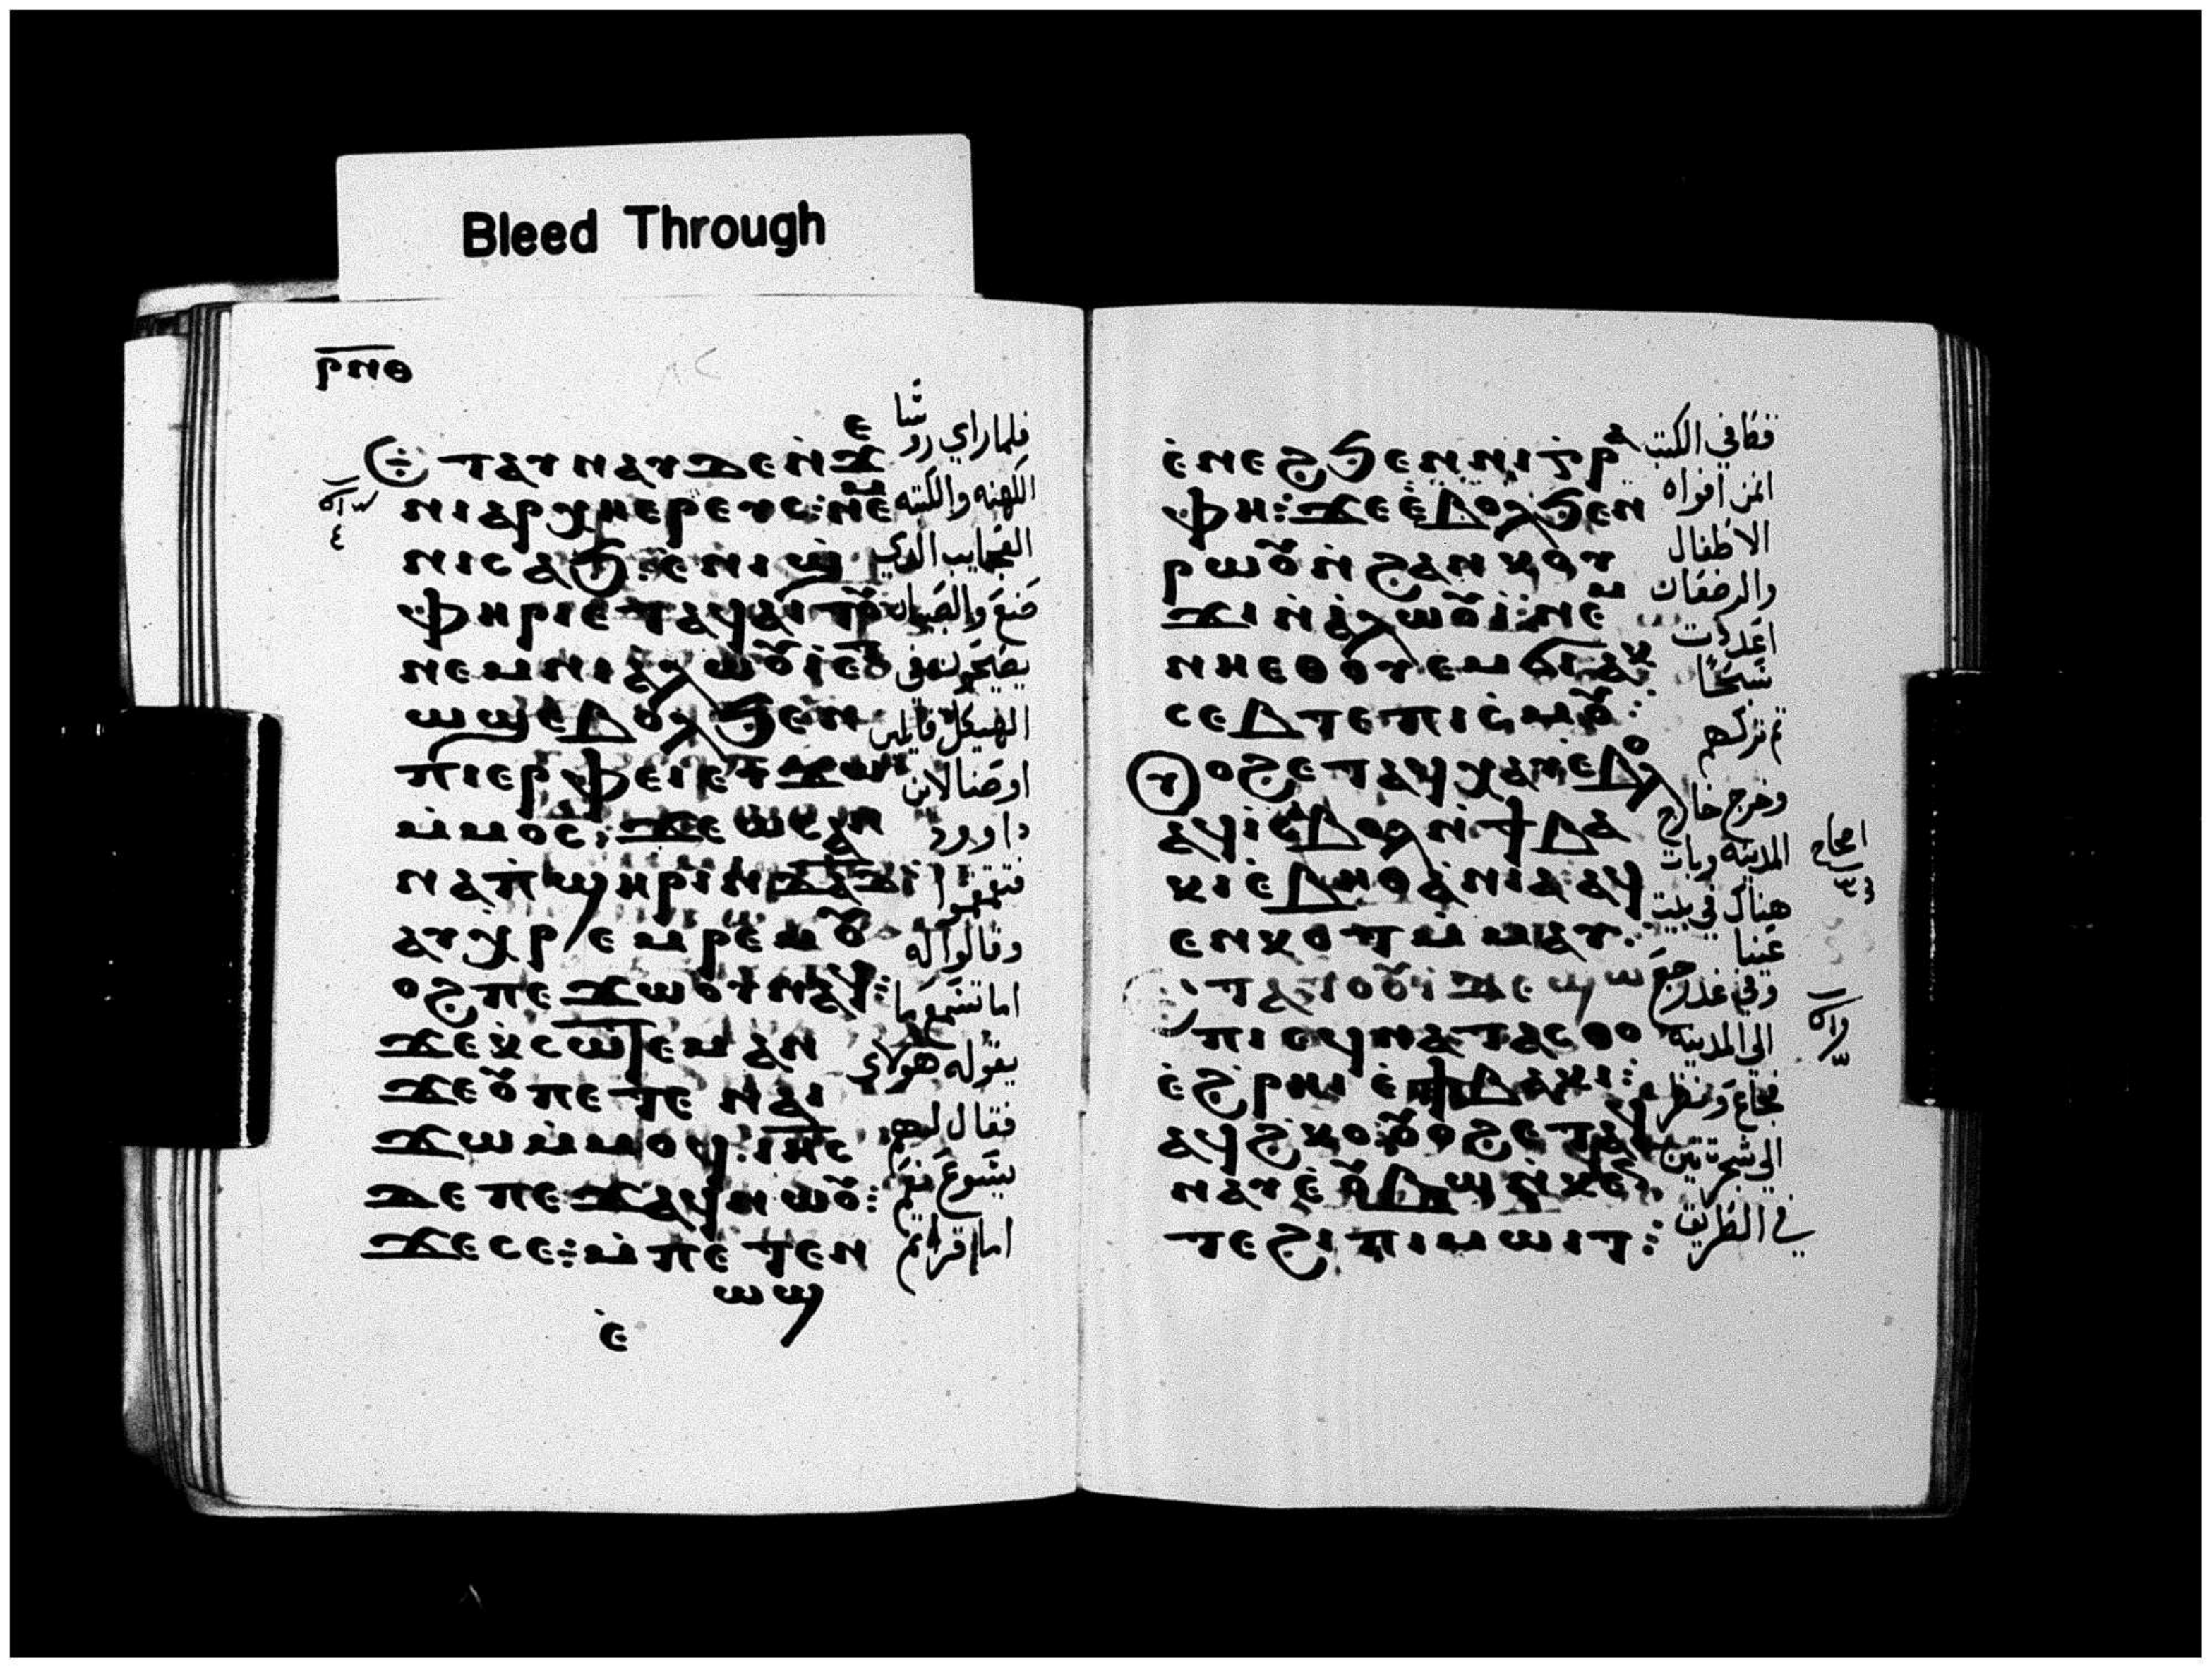 ⲣⲛⲑ
Ⲉⲧⲁⲩⲛⲁⲩ ⲇⲉ ⲛ̇ϫⲉ فلما راي روسا
ⲛⲓⲁⲣⲭⲏⲉⲣⲉⲩⲥ: ⲛⲉⲙ الكهنه والكتبه
ⲛⲓⲥⲁϧ: ⲉ̇ⲛⲓϣ العجايب الذي
ⲫⲏⲣⲓ ⲉⲧⲁϥⲁⲓⲧⲟⲩ صنع والصبيان
ⲛⲉⲙ ⲛⲓⲁ̇ⲗⲱⲟⲩⲓ̇ ⲉⲩ يصيحون في
ⲱϣ ⲉⲃⲟⲗ ϧⲉⲛ الهيكل قايلين
ⲡⲓⲉⲣⲫⲉⲓ ⲉⲩϫⲱ اوصنا لابن
ⲙ̇ⲙⲟⲥ: ϫⲉ ⲱⲥⲁⲛ داوود
ⲛⲁ ⲡ̇ϣⲏⲣⲓ ⲛ̇ⲇⲁⲇ: فتقمقموا
ⲁⲩⲭⲣⲉⲙⲣⲉⲙ ⲟⲩ وقالوا له
ⲟϩ ⲡⲉϫⲱⲟⲩ ⲛⲁϥ: اما تسمع ما
ϫⲉ ⲭ̇ⲥⲱⲧⲉⲙ ⲁⲛ يقوله هولاي
ϫⲉ ⲟⲩ ⲡⲉⲧⲉ ⲛⲁⲓ
ϫⲱ ⲙ̇ⲙⲟϥ: ⲓⲏⲥ فقال لهم
ⲇⲉ ⲡⲉϫⲁϥ ⲛⲱⲟⲩ: يسوع نعم
ϫⲉ ⲥⲉ: ⲙ̇ⲡⲉⲧⲉⲛ اما قراتم
ⲱϣ
ⲉ̇
ⲉ̇ⲛⲉϩ ϧⲉⲛ ⲛⲓⲅⲣⲁ قط في الكتب
ⲫⲏ: ϫⲉ ⲉ̇ⲃⲟⲗ ϧⲉⲛ ان من افواه
ⲣⲱⲟⲩ ⲛ̇ϩⲁⲛⲕⲟⲩ الاطفال
ϫⲓ ⲛ̇ⲁ̇ⲗⲱⲟⲩⲓ̇: ⲛⲉⲙ والرضعان
ⲛⲏ ⲉⲑⲟⲩⲉⲙ ϭⲓ ⲁⲕ اعددت
ⲥⲉⲃⲧⲉ ⲡⲓⲥ̇ⲙⲟⲩ: سبحًا
ⲟⲩⲟϩ ⲉⲧⲁϥⲭⲁⲩ ⲉⲃⲟⲗ ثم تركهم
ⲁϥⲓ̇ ⲉ̇ⲃⲟⲗ ⲛ̇ϯⲃⲁ وخرج خارج
ⲕⲓ ⲉ̇ⲃⲏⲑⲁⲛⲓⲁ ⲁϥ المدينه وبات
ⲉⲛⲕⲟⲧ ⲙ̇ⲙⲁⲩ. هناك في بيت عنيا
ⲉⲧⲁⲧⲟⲟⲩⲓ̇ ⲇⲉ ϣⲱ وفي غد رجع
ⲡⲓ ⲉϥⲛⲁⲧⲁⲥⲑⲟ الي المدينه
ⲉ̇ϩ̇ⲣⲏⲓ ⲉ̇ϯⲃⲁⲕⲓ: فجاع ونظر
ⲁϥϩ̇ⲕⲟ: ⲟⲩⲟϩ ⲉⲧⲁϥ الي شجرة تين
ⲛⲁⲩ ⲉ̇ⲟⲩⲃⲱ ⲛ̇ⲕⲉⲛ
ⲧⲉ ϩⲓ ⲡⲓⲙⲱⲓⲧ: في الطريق